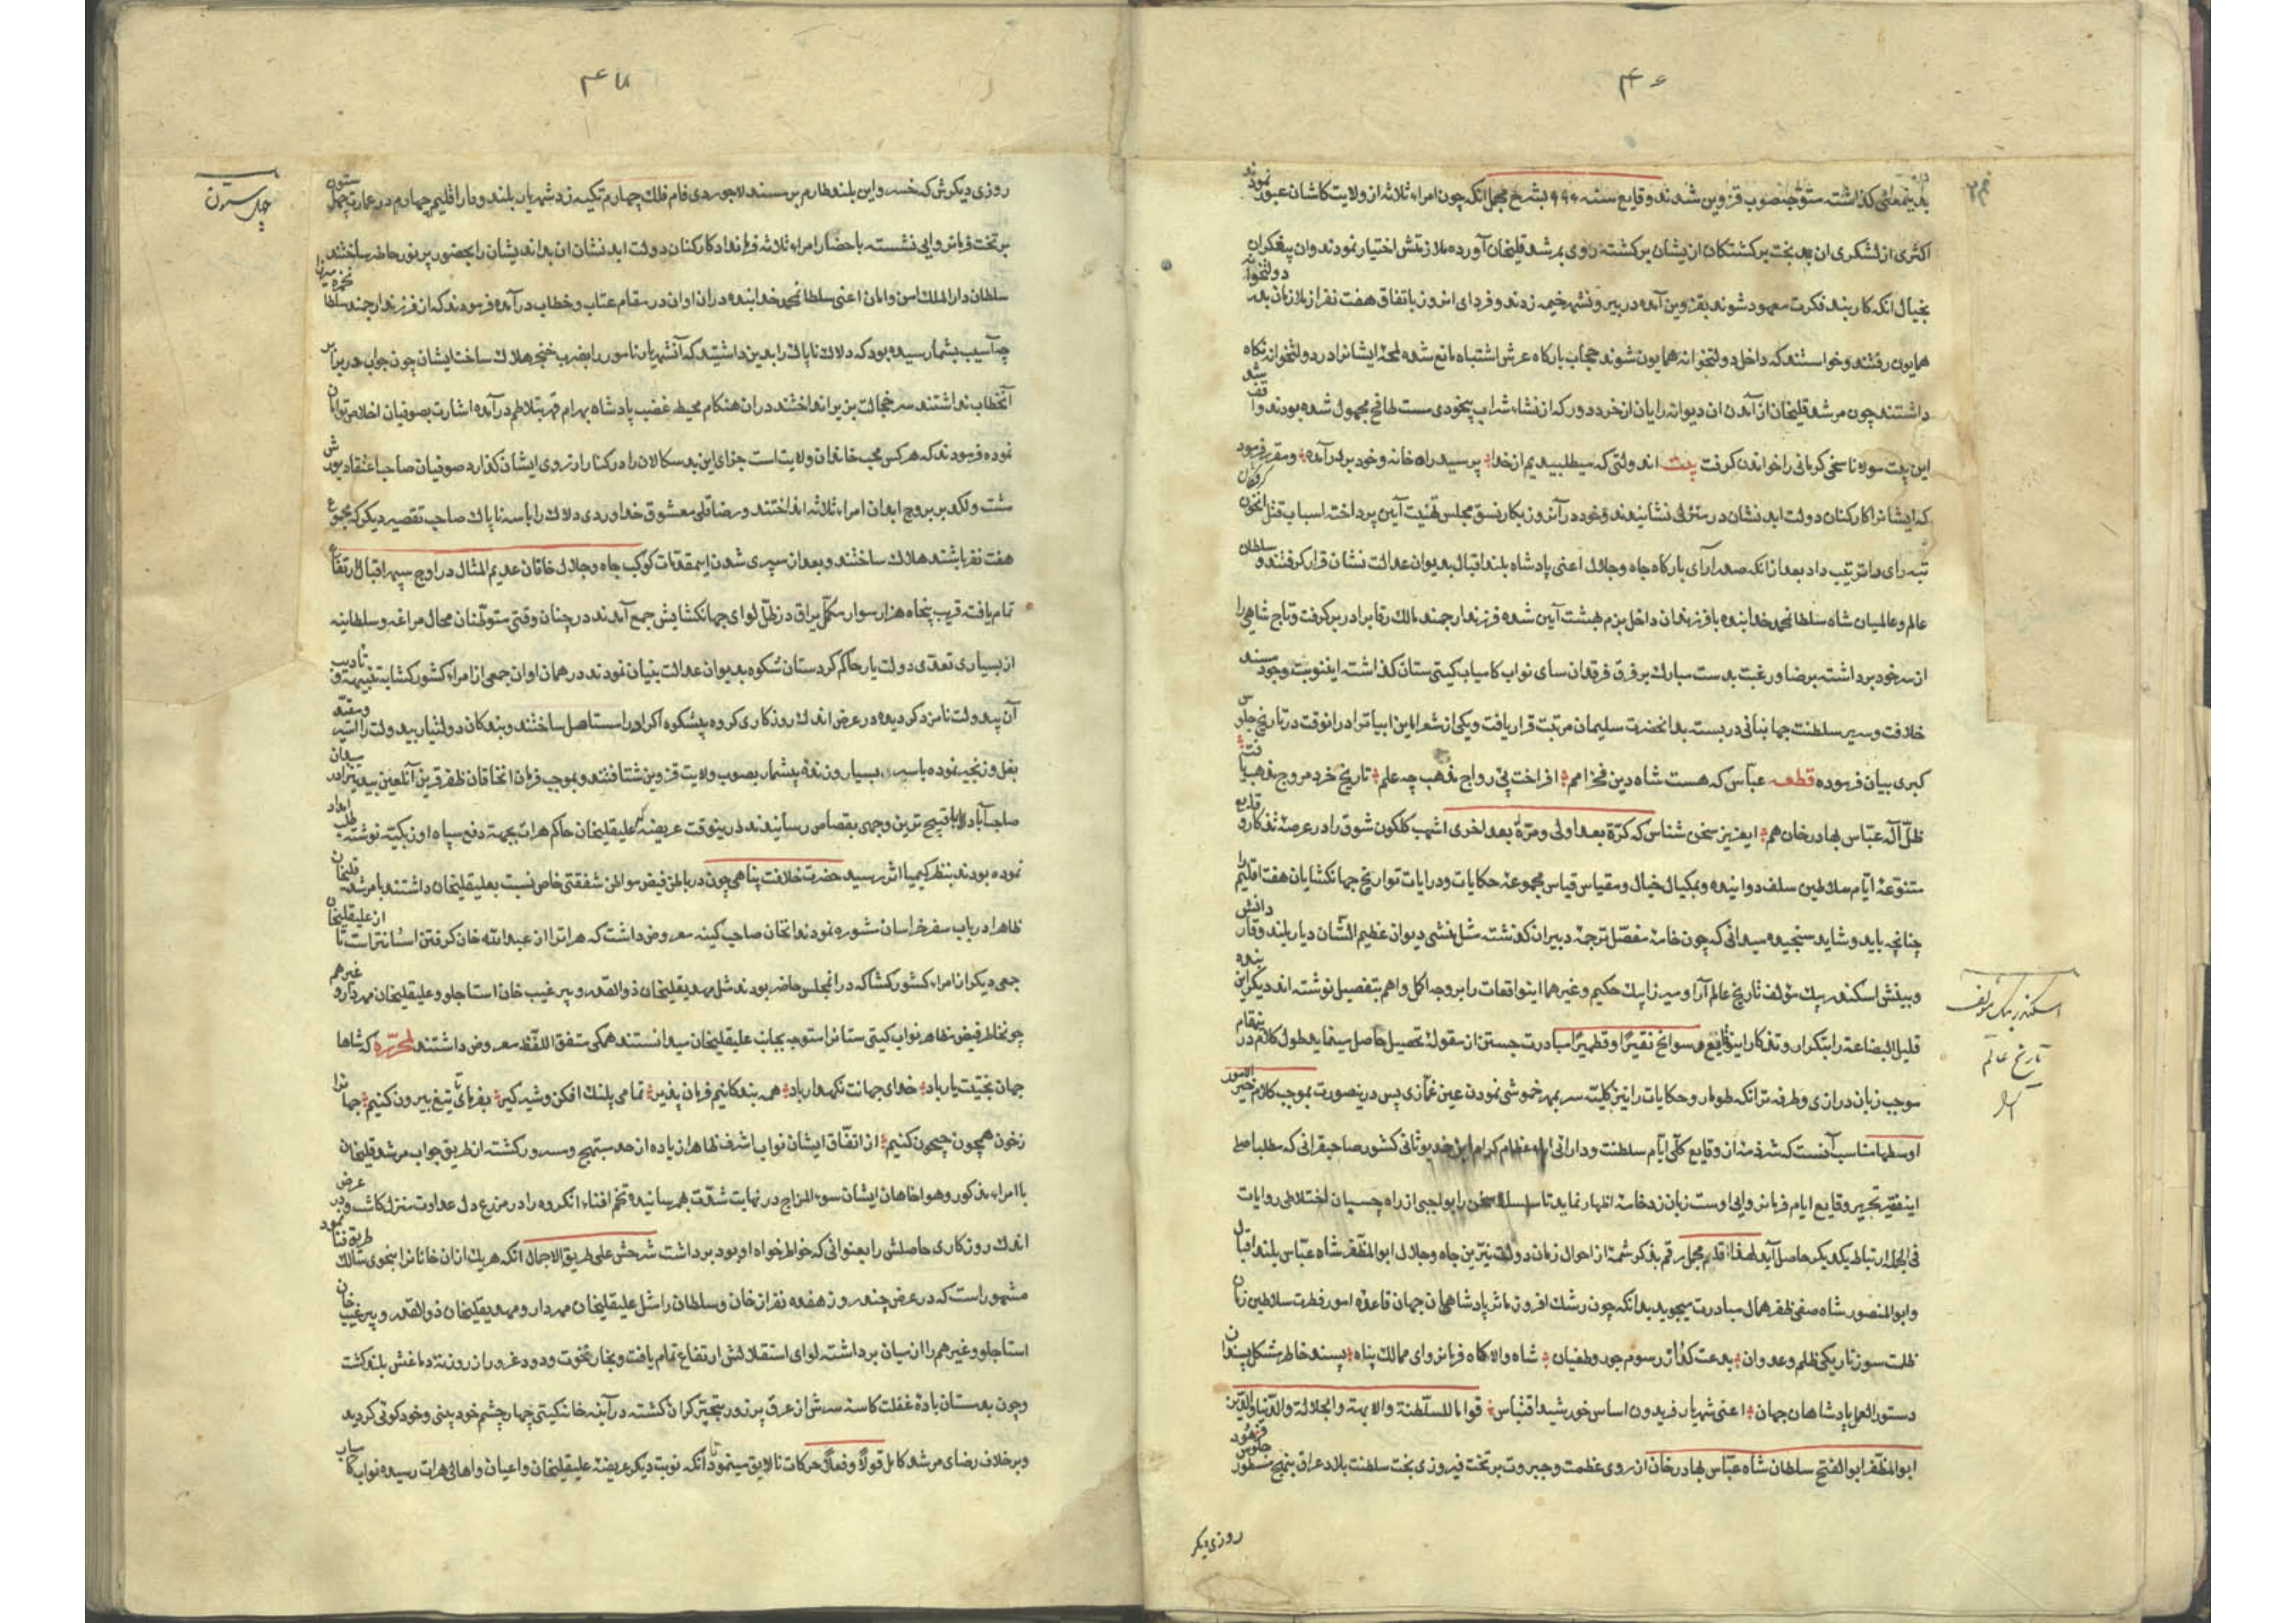 ۴۶
بدینمعنی گذاشته متوجه صوب قزوین شدند وقایع سنه ۹۹۶ بشرح مجمل آنکه چون امراء ثلاثه از ولایت کاشان عبور نمودند
اکثری از لشکری ان بخت برکشتکان ازیشان برکشته روی بمرشد قلیخان آورده ملازمتش اختیار نمودند وان
بخیال انکه کاربند فکرت معهود شوند بقزوین آمده در بیرون شهر خیمه زدند و فردای انروز باتفاق هفت نفر از ملازمان بدولتخوانه
همایون رفتند و خواستند که داخل دولتخوانه همایون شوند حجاب بارکاه عرش اشتباه مانع شده لمحۀ ایشانرا در دولتخوانه نکاه
داشتند چون مرشد قلیخان از آمدن ان دیوانه رایان از خرد دور که از نشاء شراب بیخودی مست طافح مجهول شده بودند واقف شد
این بیت مولانا سخی کرمانی را خواندن کرفت بیت اندولتی که میطلبیدیم از خدا پرسید راه خانه و خود بردر آمده ومقرر فرمود
که ایشانرا کارکنان دولت ابد نشان در منزلی نشانیدند وخود در آنروز بکار نسق مجلس تهنیت آیین پرداخته اسباب قتل انخون کرفتکان
تبه رای را ترتیب داد بعد از انکه صدر آرای بارکاه جاه وجلال اعنی پادشاه بلند اقبال بدیوان عدالت نشان قرار کرفتند و سلطان
عالم و عالمیان شاه سلطانمحمد خدابنده با فرزندان داخل بزم بهشت آیین شده فرزند ارجمند مالک رقابرا در بر کرفت وتاج شاهی را
از سر خود برداشته برضا ورغبت بدست مبارک بر فرق فرقدان سای نواب کامیاب کیتی ستان کذاشته اینوبت وجود مسند
خلافت وسریر سلطنت جهانبانی دربست بدانحضرت سلیمان مرتبت قرار یافت ویکی از شعرا این ابیاترا درانوقت در تاریخ جلوس
کبری بیان فرموده قطعه عباس که هست شاه دین فخر امم افراخت پی رواج مذهب چه علم تاریخ خرد مروج مذهب یافت
ظلّ اله عباس بهادر خان هم ایعزیز سخن شناس که کرّة بعد اولی ومرّة بعد اخری اشهب کلکون شوق را در عرصه تذکار وقایع
متنوعۀ ایّام سلاطین سلف دوانیده وبمکیال خیال ومقیاس قیاس مجموعۀ حکایات و درایات تواریخ جهانکشایان هفت اقلیم را
چنانچه باید وشاید سنجیده میدانی که چون خامۀ مفصّل ترجمۀ دبیران کذشته مثل منشی دیوان عظیم الشّان دیار بلند وقار دانش
وبینش اسکندر بیک مؤلف تاریخ عالم آرا و میرزا بیک حکیم وغیرهما اینواقعات را بروجه اکمل واهم بتفصیل نوشته اند دیکر این بنده
قلیل البضاعة را بتکرار وتذکار اینوقایع وسوانح نقیرًا وقطمیرًا مبادرت جستن از مقوله تحصیل حاصل مینماید طول کلام در اینمقام
موجب زبان درازی وطرفه تر انکه طومار وحکایات را نیز کلیته سر بمهر خموشی نمودن عین غمازی پس درینصورت بموجب کلام خیر الامور
اوسطها مناسب آنست که شرذمۀ از وقایع کلّی ایّام سلطنت و دارائی آباء عظام کرام این خدیو ثانی کشور صاحبقرانی که مطلب اصلی
اینفقیر تحریر وقایع ایام فرمانروایی اوست زبان زد خامۀ اظهار نماید تا سلسلۀ سخن را بوالعجبی از راه چسبان اختلاطی روایات
فی الجمله ارتباط یکدیکر حاصل آید لهذا قلم مجمل رقم بذکر شمۀ از احوال زمان دولت نیّرین جاه وجلال ابوالمظفر شاه عبّاس بلند اقبال
وابوالمنصور شاه صفی ظفر همال مبادرت میجوید بدانکه چون رشک افروز ماثر پادشاهان جهان قاعدۀ امور فطرت سلاطین زمان
ظلمت سوز تاریکی ظلم وعدوان بدعت کذار رسوم جور وطغیان شاه والاکاه فرمانروای ممالک پناه پسند خاطر مشکل پسندان
دستور العمل پادشاهان جهان اعنی شهریار فریدون اساس خورشید اقتباس قواما للسلطنة والابهة والجلالة والدنیا والدین
ابوالمظفر ابوالفتح سلطان شاه عبّاس بهادر خان از روی عظمت وجبروت بر تخت فیروزی بخت سلطنت بلاد عراق بنهج مسطور جلوس فرمود
روزی دیکر
اسکندر بیک مؤلف
تاریخ عالم
آرا
۴۷
چهل ستون
روزی دیکرش که خسرو این بلند طارم بر مسند لاجوردی فام فلک چهارم تکیه زد شهریار بلند وقار اقلیم چهارم در عمارت چهل ستون
بر تخت فرمانروایی نشسته باحضار امراء ثلاثه فرمانداد کارکنان دولت ابد نشان ان بداندیشان را بحضور پر نور حاضر ساختند
سلطان دار الملک امن وامان اعنی سلطانمحمد خدابنده دران اوان در مقام عتاب وخطاب در آمده فرمودند که از فرزند ارجمند سلطان حمزه میرزا
چه آسیب بشما رسیده بود که دلاک ناپاک را بدین داشتید که آنشهریار نامور را بضرب خنجر هلاک ساخت ایشان چون جواب در برابر
آنخطاب نداشتند سر خجالت بزیر انداختند دران هنکام محیط غضب پادشاه بهرام قهر بتلاطم در آمده اشارت بصوفیان اخلاص توامان
نموده فرمودند که هر کس محب خاندان ولایت است جزای این بدسکالان را در کنار ارزوی ایشان کذارد صوفیان صاحب اعتقاد یورش
مشت ولکد بر بروج ابدان امراء ثلاثه انداختند ورضا قلی معشوق خداوردی دلاک را با سه ناپاک صاحب تقصیر دیکر که مجموع
هفت نفر باشند هلاک ساختند وبعد از سپری شدن اینمقدمات کوکب جاه وجلال خاقان عدیم المثال در اوج سپهر اقبال ارتفاع
تمام یافته قریب پنجاه هزار سوار مکمّل یراق در ظلّ لوای جهانکشایش جمع آمدند در چنان وقتی متوطنان محال مراغه وسلطانیه
از بسیاری تعدّی دولت یار حاکم کردستان شکوه بدیوان عدالت بنیان نمودند در همان اوان جمعی از امراء کشور کشا به تنبیه و تادیب
آن بیدولت نامزد کردیده در عرض اندک روزکاری کروه بیشکوه اکراد را مستاصل ساختند وبندکان دولتیار بیدولت را اسیر ومقید
بغل وزنجیر نموده با سر بسیار ونقد بیشمار بصوب ولایت قزوین شتافتند وبموجب فرمان انخاقان ظفر قرین آنلعین بیدین را در میدان
صاحب آباد بااقبح ترین وجهی بقصاص رسانیدند درینوقت عریضۀ علیقلیخان حاکم هرات بجهة دفع سپاه اوزبکیه نوشته طلب امداد
نموده بودند بنظر کیمیا اثر رسید حضرت خلافت پناهی چون در باطن فیض مواطن شفقتی خاص نسبت بعلیقلیخان داشتند با مرشد قلیخان
ظاهرا در باب سفر خراسان مشوره نمودند انخان صاحب کینه معروض داشت که هراترا از عبدالله خان کرفتن اسانتر است تا از علیقلیخان
جمعی دیکر از امراء کشور کشا که در انمجلس حاضر بودند مثل مهدیقلیخان ذوالقدر وپیر غیب خان استاجلو وعلیقلیخان مهردار و غیرهم
چونخاطر فیض مظاهر نواب کیتی ستانرا متوجه بجانب علیقلیخان میدانستند همکی متفق اللفظ معروض داشتند لمحرّره که شاها
جهان بخّتیت یار باد خدای جهانت نکهدار باد همه بندکانیم فرمان پذیر تمامی پلنک افکن وشیر کیر بفرمای تا تیغ بیرون کنیم جهانرا
زخون همچون جیحون کنیم از اتفّاق ایشان نواب اشرف ظاهرا زیاده از حد مبتهج ومسرور کشته از طریق جواب مرشد قلیخان
با امراء مذکور وهواخاهان ایشان سوء المزاج در نهایت شدّت بهمرسانیده تخم افناء انکروه را در مزرع دل عداوت منزل کاشت ودر عرض
اندک روزکاری حاصلش را بعنوانی که خواطر خواه او بود برداشت شرحش علی طریق الاجمال انکه هریک ازان خانانرا بنحوی سالک طریق فنا نمود
مشهور است که در عرض چند روز هفده نفر از خان وسلطان را مثل علیقلیخان مهردار ومهدیقلیخان ذوالقدر وپیر غیب خان
استاجلو وغیرهم را از میان برداشته لوای استقلالش ارتفاع تمام یافت وبخار نخوت ودود غرور از روزنۀ دماغش بلند کشت
وچون بدمستان بادۀ غفلت کاسۀ سرش از عرق پر زور تبختر کران کشته در آینه خانۀ کیتی چهار چشم خود بینی وخود کوئی کردید
وبر خلاف رضای مرشد کامل قولاً وفعلاً حرکات نالایق مینمود تا انکه نوبت دیکر عریضۀ علیقلیخان واعیان واهالی هرات رسیده نواب کامیاب